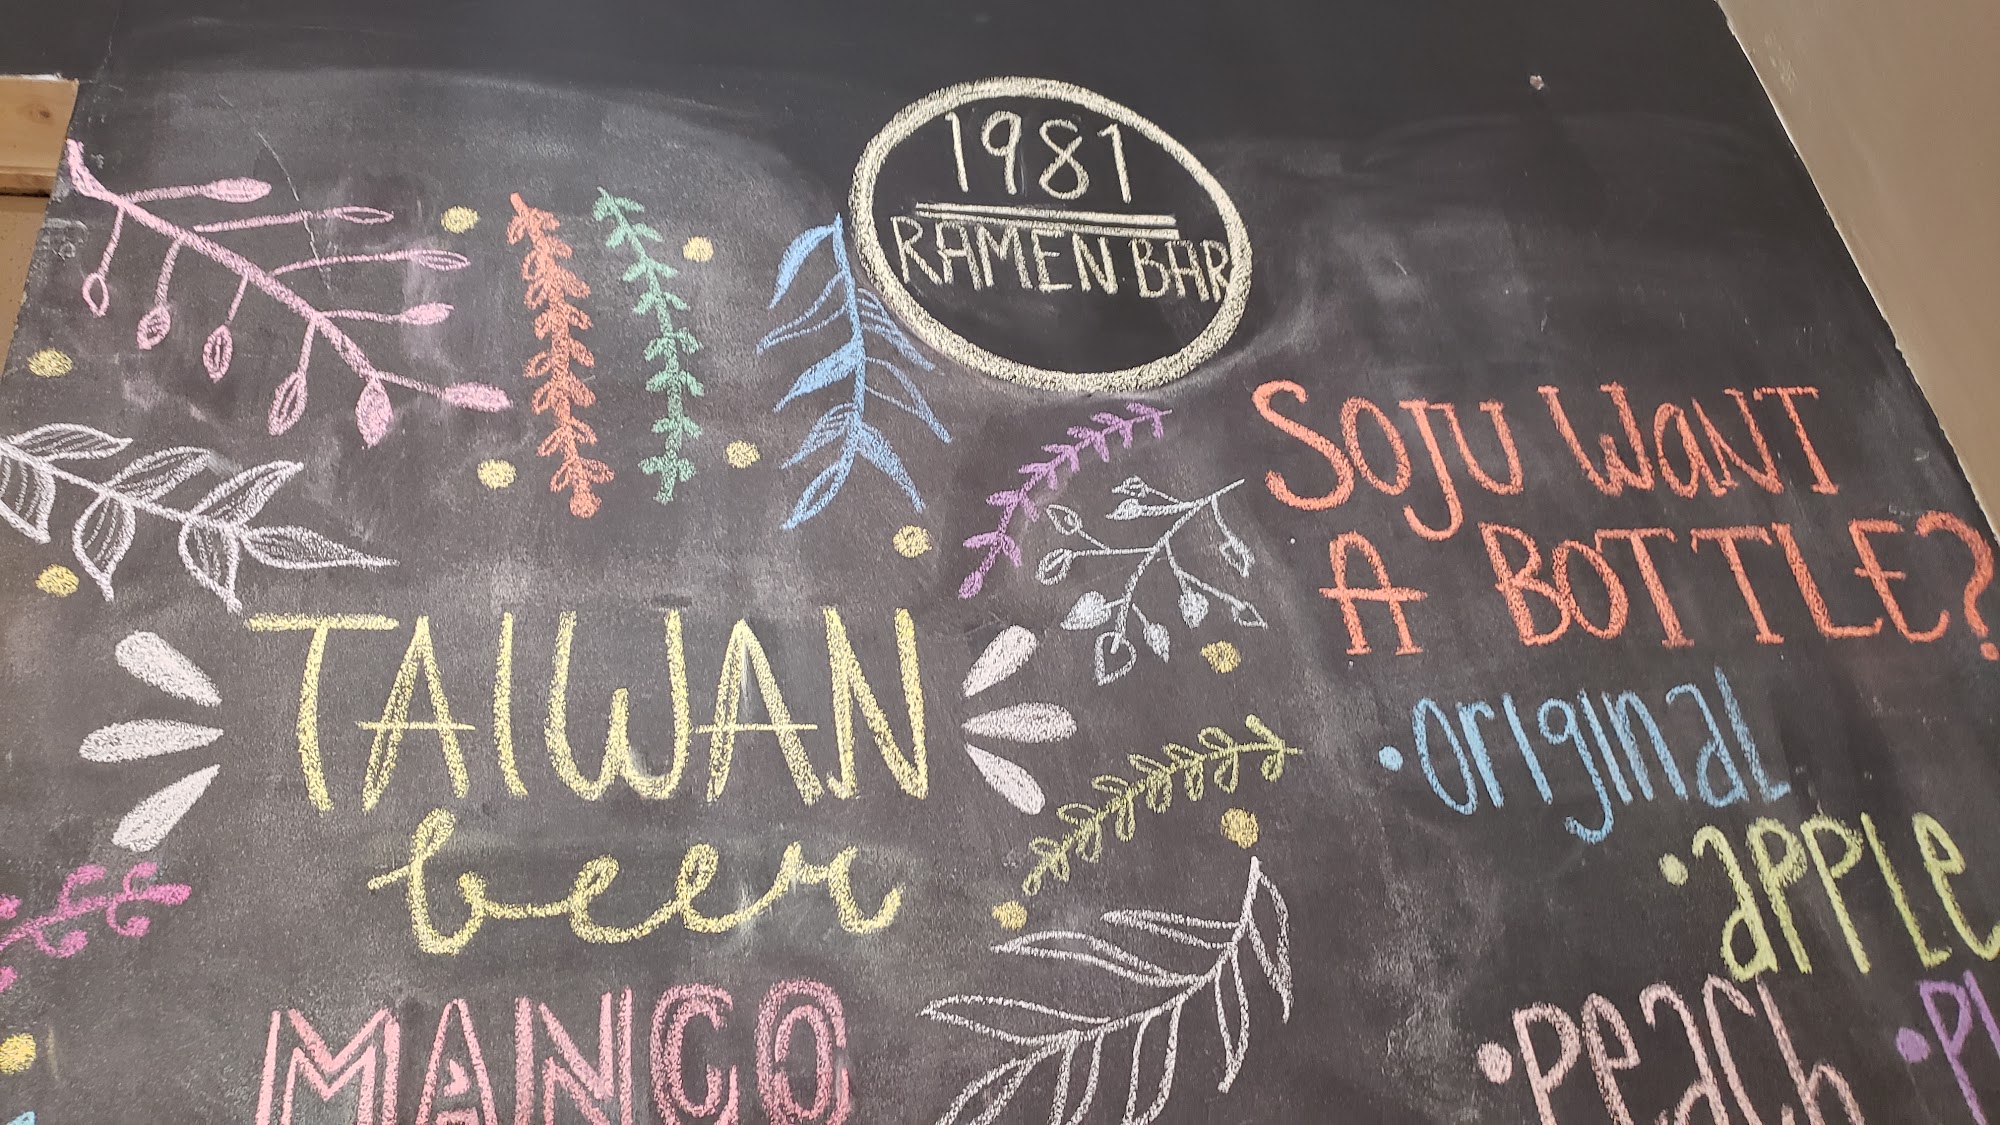 1981
RAMEN BAR
TAIWAN
beer
MANGO
SOJU WANT
A BOTTLE?
• original
• apple
• peach